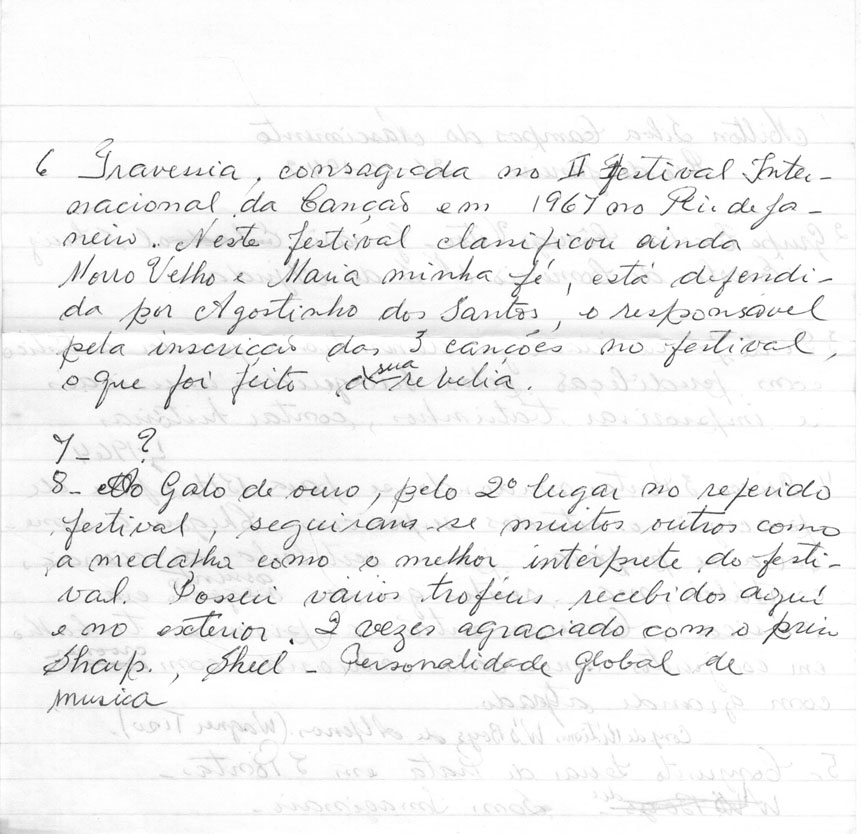 6 Travessia, consagrada no II Festival Inter-
nacional da Canção em 1967 no Rio de Ja-
neiro. Neste festival classificou ainda
Morro Velho e Maria minha fé, está defendi-
da por Agostinho dos Santos, o responsável
pela inscrição das 3 canções no festival,
o que foi feito à sua revelia.
7- ?
8- Ao Galo de ouro, pelo 2º lugar no referido
festival, seguiram-se muitos outros como
a medalha como o melhor interprete do festi-
val. Possui vários troféus recebidos aqui
e no exterior. 2 vezes agraciado com o
Sharp, Shell - Personalidade Global de
musica